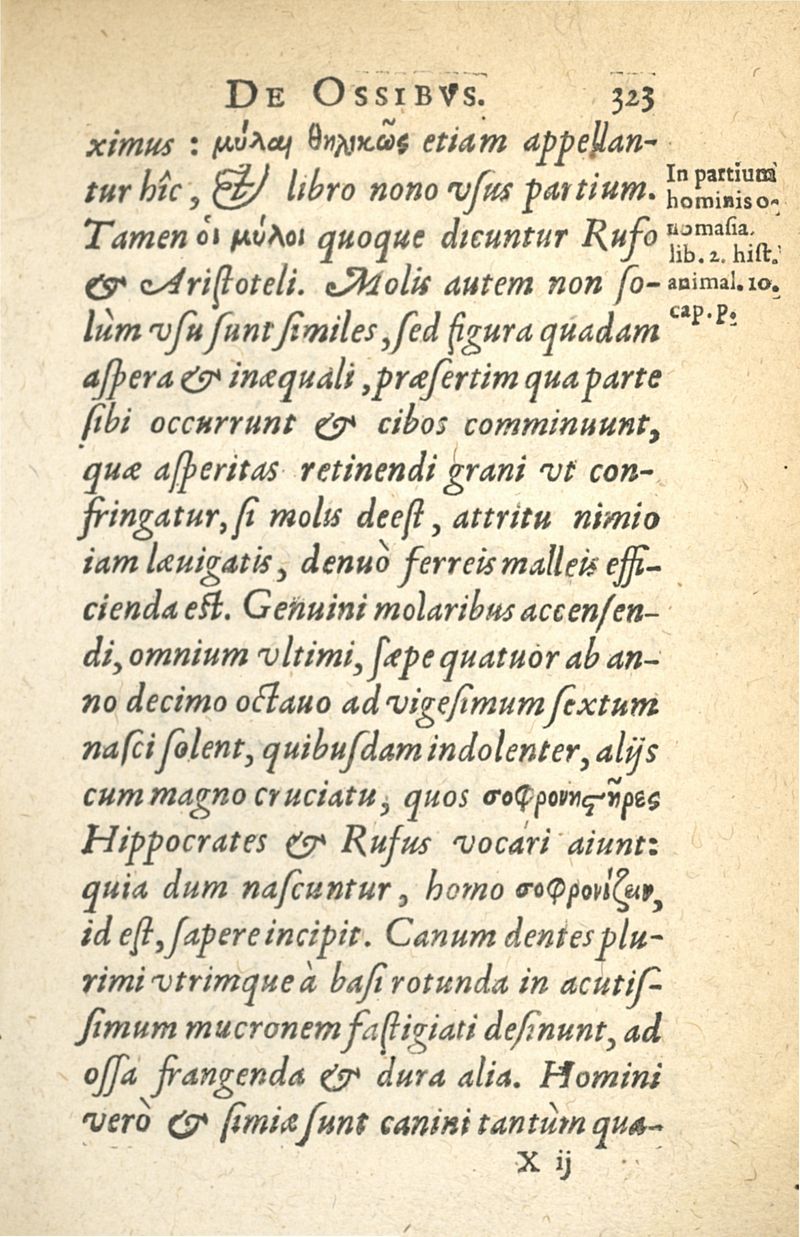 DE OSSIBVS. 323
ximus : μύλαι θηλικῶς etiam appellan-
tur hîc, & libro nono vſus partium.
Tamen οἱ μύλοι quoque dicuntur Rufo
& Ariſtoteli. Molis autem non ſo-
lùm vſu ſunt ſimiles, ſed figura quadam
aſpera & inæquali, præſertim qua parte
ſibi occurrunt & cibos comminuunt,
quæ aſperitas retinendi grani vt con-
fringatur, ſi molis deeſt, attritu nimio
iam læuigatis, denuò ferreis malleis effi-
cienda eſt. Genuini molaribus accenſen-
di, omnium vltimi, ſæpe quatuor ab an-
no decimo octauo ad vigeſimum ſextum
naſci ſolent, quibuſdam indolenter, alijs
cum magno cruciatu, quos σοφρονιςῆρες
Hippocrates & Rufus vocari aiunt:
quia dum naſcuntur, homo σοφρονίζειν,
id eſt, ſapere incipit. Canum dentes plu-
rimi vtrimque à baſi rotunda in acutiſ-
ſimum mucronem faſtigiati deſinunt, ad
oſſa frangenda & dura alia. Homini
verò & ſimiæ ſunt canini tantùm qua-
X ij
In partium
hominis o-
nomaſia.
lib. 2. hiſt.
animal. 10.
cap. p.